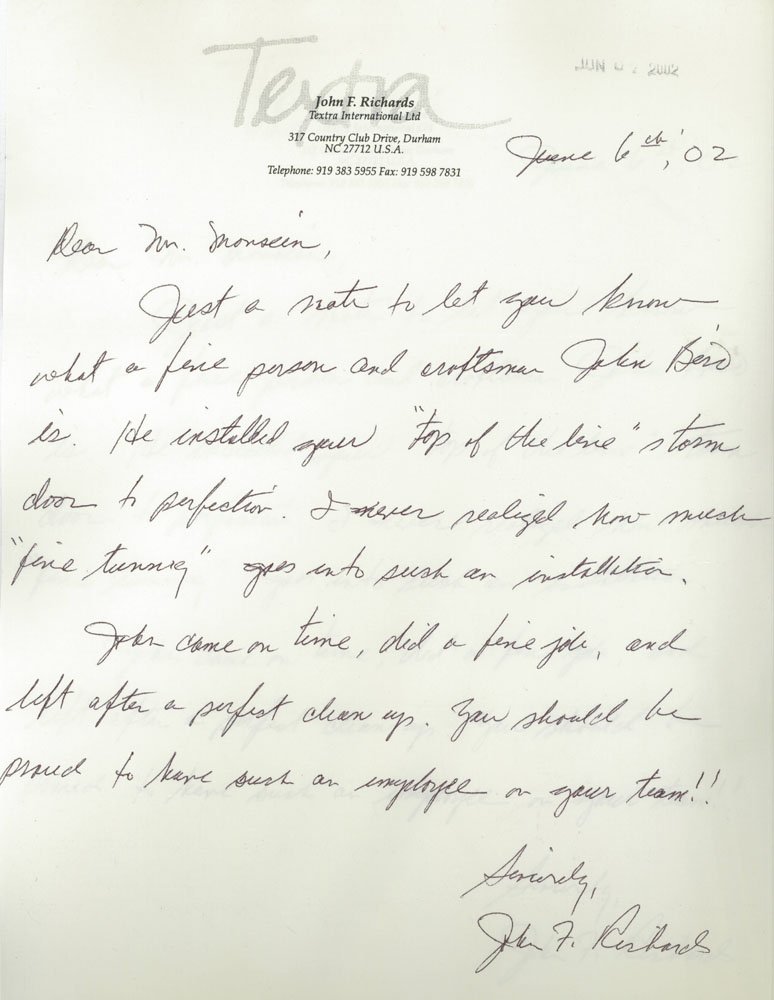 Textra
JUN 2002
John F. Richards
Textra International Ltd
317 Country Club Drive, Durham
NC 27712 U.S.A.
Telephone: 919 383 5955 Fax: 919 598 7831
June 6th, '02
Dear Mr. Monsein,
Just a note to let you know
what a fine person and craftsman John Bird
is. He installed your "top of the line" storm
door to perfection. I never realized how much
"fine tunnig" goes into such an installation.
John came on time, did a fine job, and
left after a perfect clean up. You should be
proud to have such an employee on your team!!
Sincerely,
John F. Richards